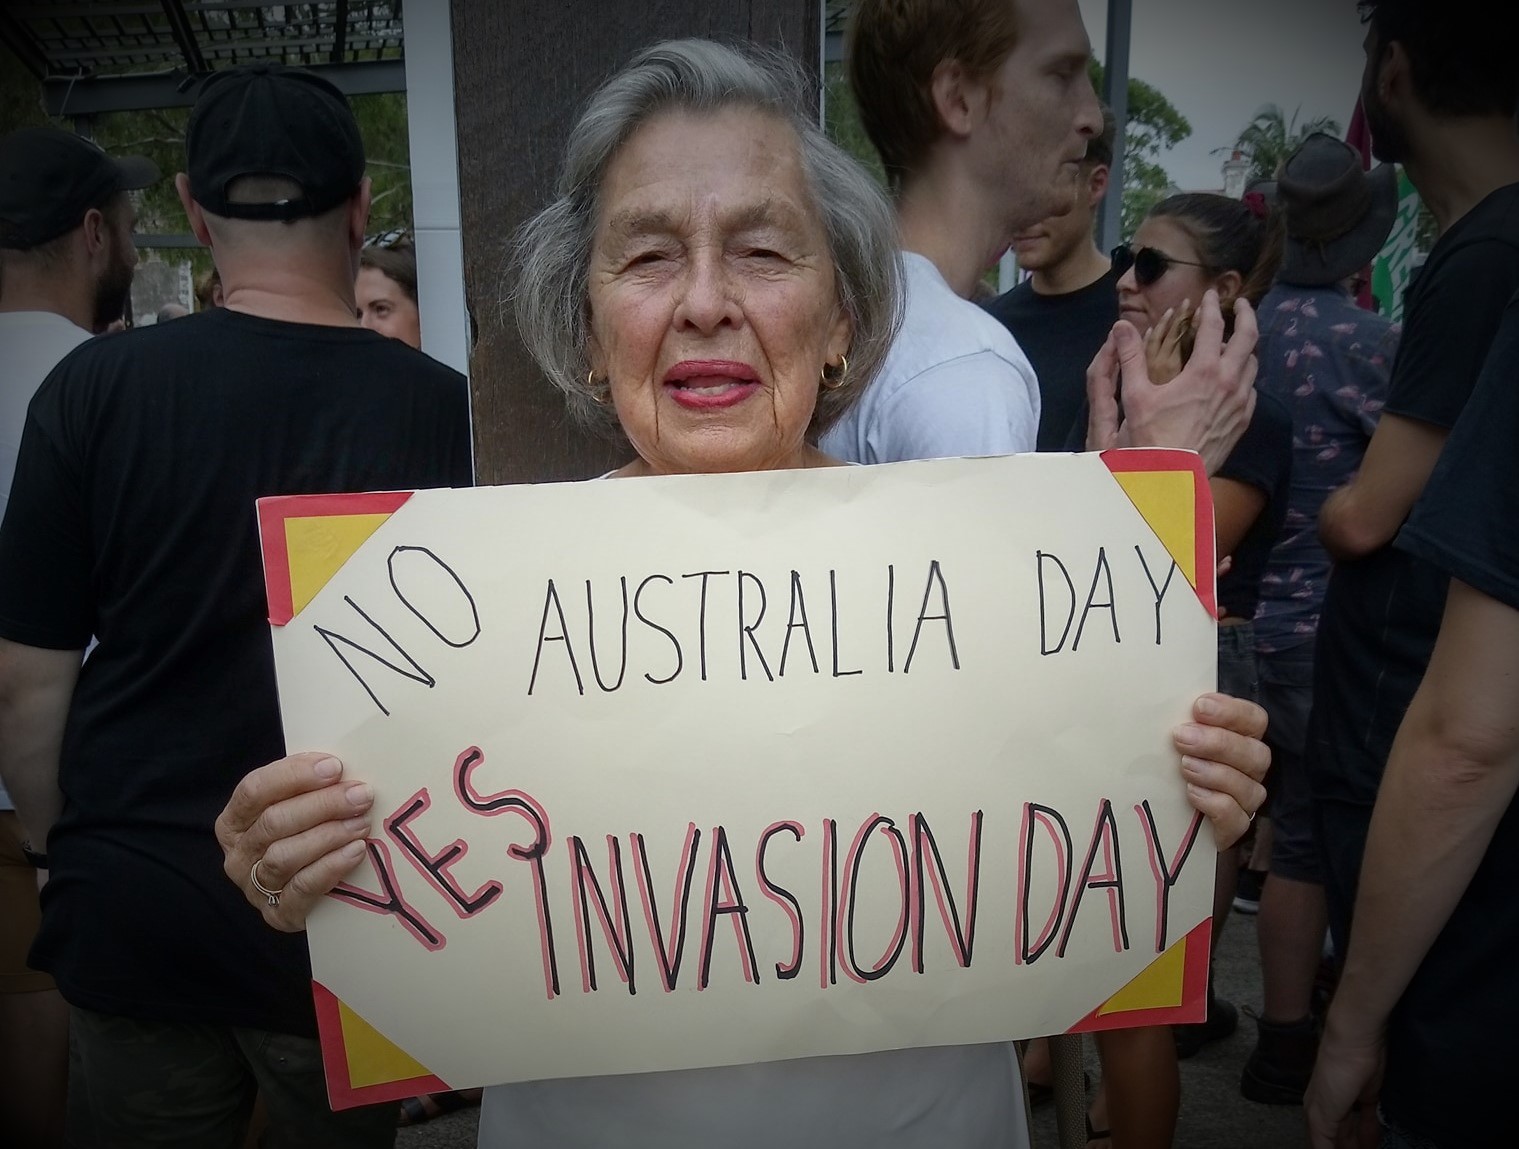 NO AUSTRALIA DAY
YES INVASION DAY